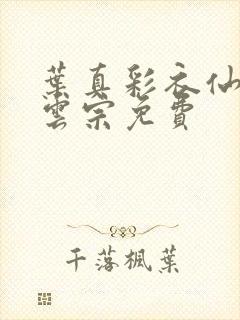 葉真彩衣仙
雲宗免費
千落楓葉